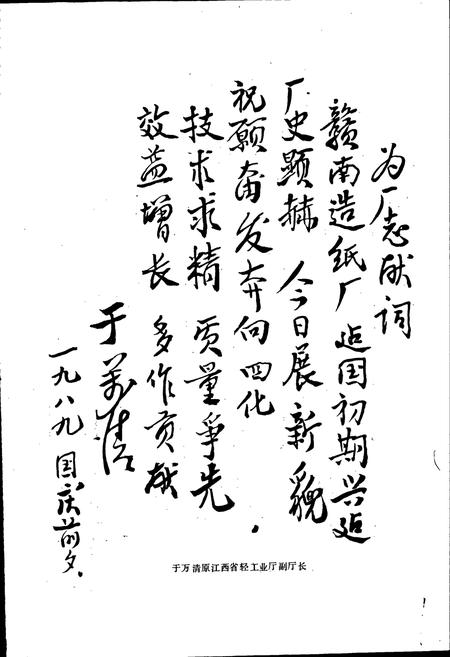 为厂志献词
赣南造纸厂 建国初期兴建
厂史显赫 今日展新貌
祝愿奋发奔向四化
技术求精 质量争先
效益增长 多作贡献
于万清
一九八九国庆前夕
于万清原江西省轻工业厅副厅长